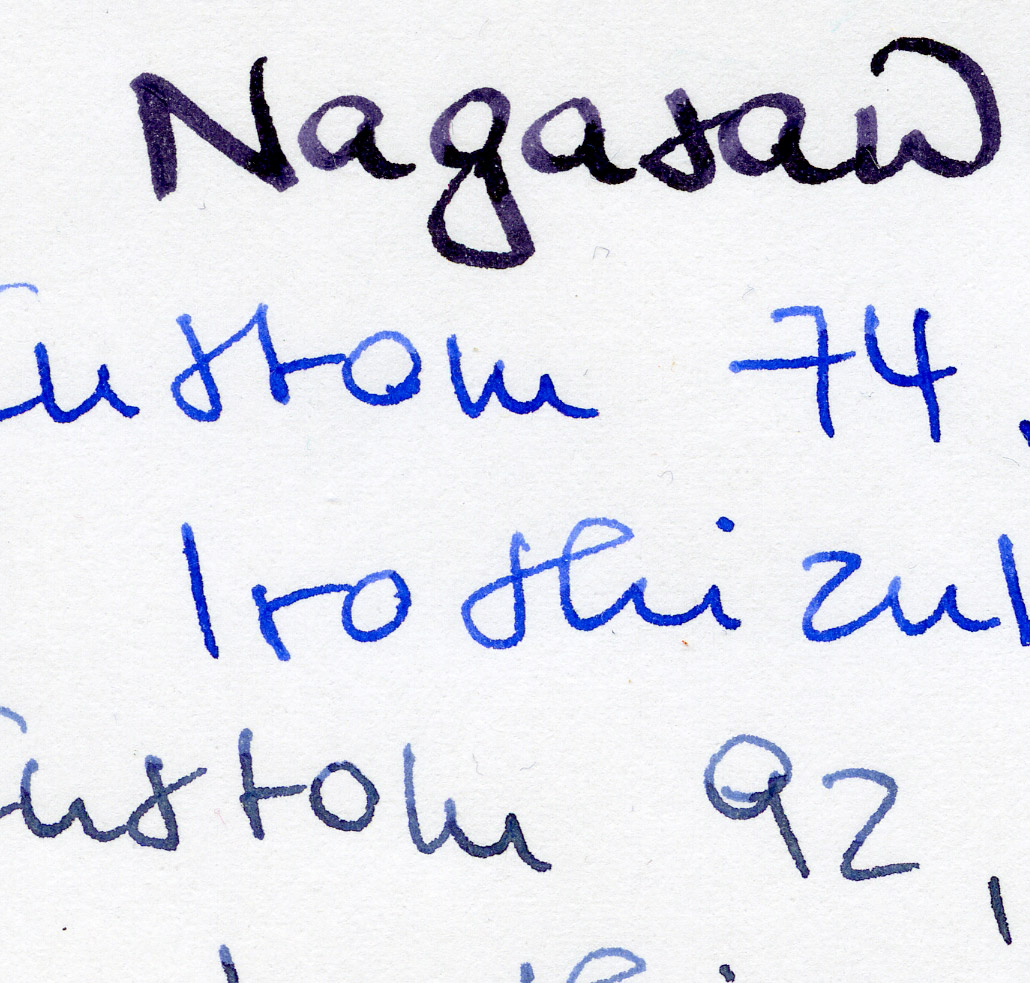 Nagasaw
Custom 74,
Iroshizuk
Custom 92,